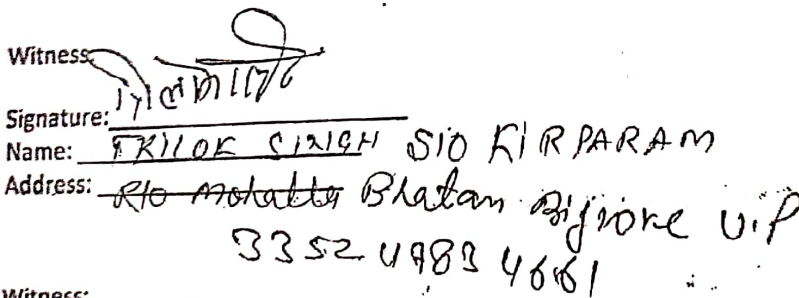 Witness:
Signature:
Name: TRILOK SINGH S/O KIRPARAM
Address: R/o Mohalla Bhatan Bijnore U.P
3352 4983 4661
Witness: